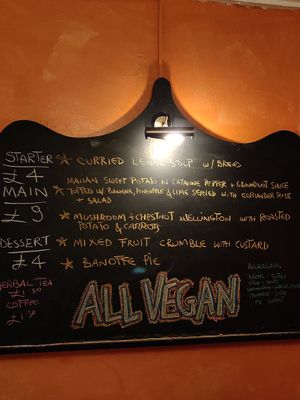 STARTER ★ CURRIED LENTIL SOUP w/ BREAD
£4
MAIN
MALIAN SWEET POTATO IN CAYENNE PEPPER + GROUNDNUT SAUCE
★ TOPPED w/ BANANA, PINEAPPLE & LIME SERVED WITH CORIANDER RICE
+ SALAD
£9
★ MUSHROOM + CHESTNUT WELLINGTON WITH ROASTED
POTATO & CARROTS
DESSERT ★ MIXED FRUIT CRUMBLE WITH CUSTARD
£4
★ BANOFFE PIE
HERBAL TEA
£1.50
COFFEE
£1.50
ALL VEGAN
ALLERGENS